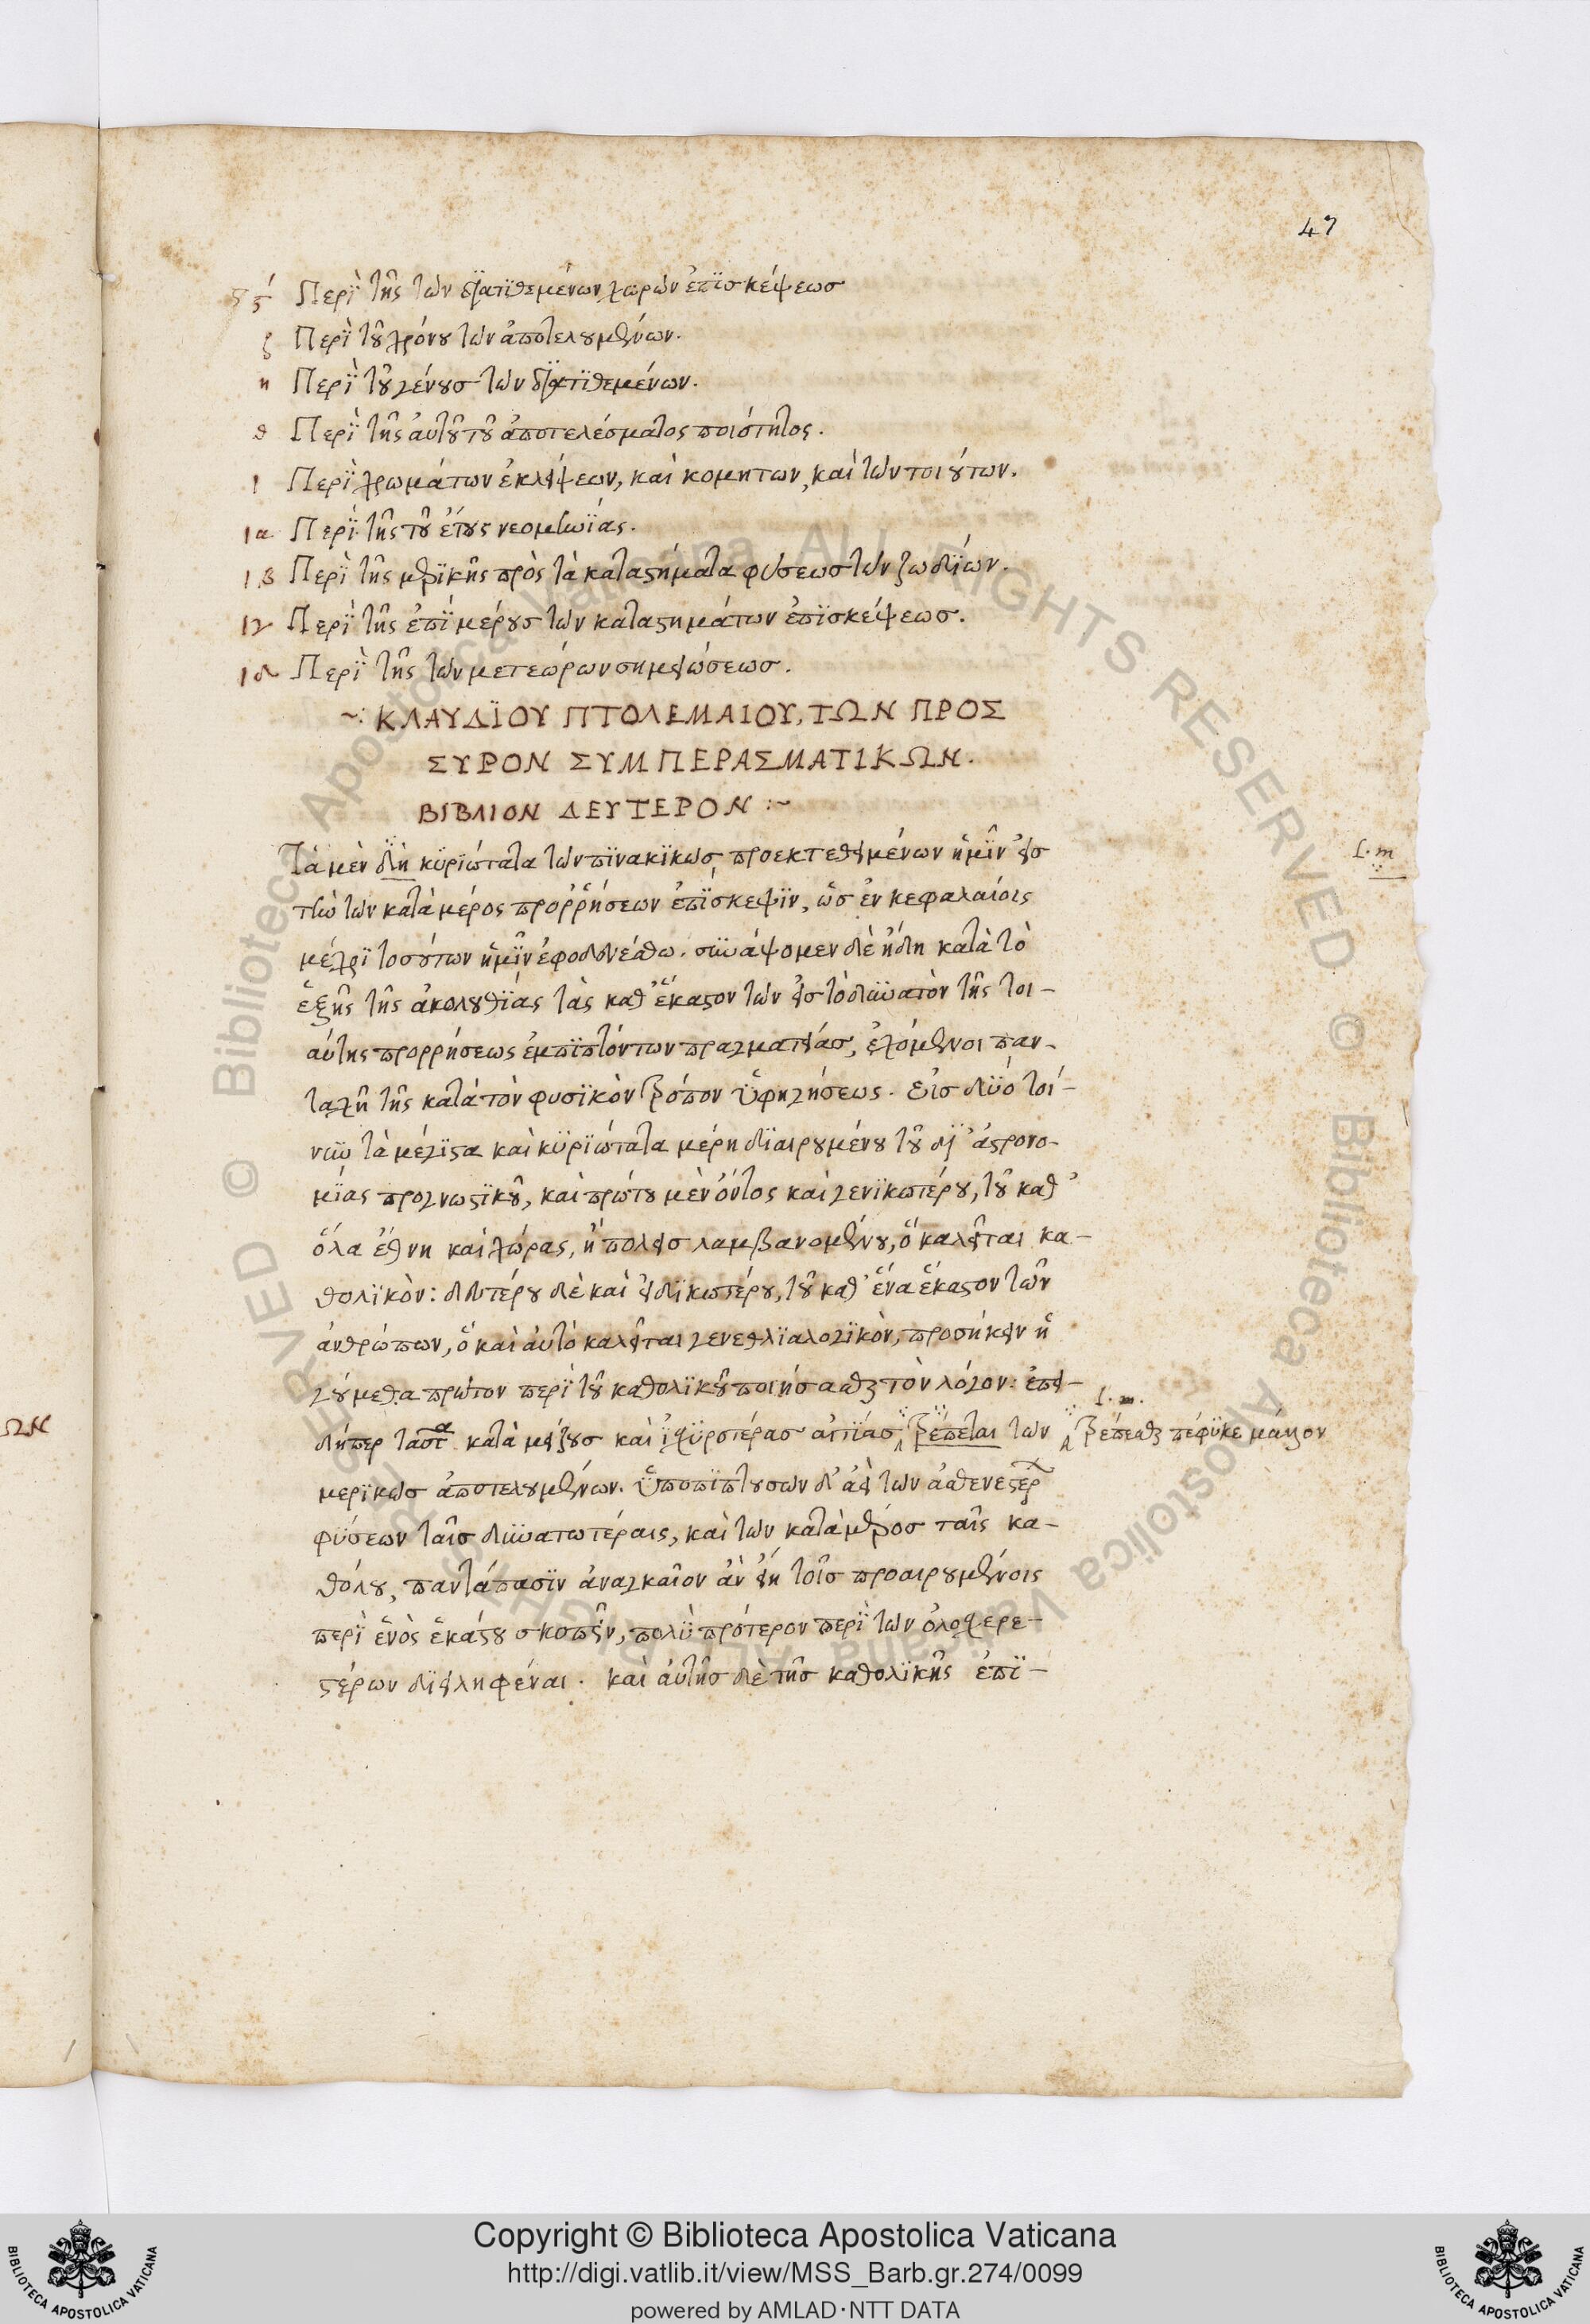 47
ϛ Περὶ τῆς τῶν διατιθεμένων χωρῶν ἐπισκέψεως
ζ Περὶ τοῦ χρόνου τῶν ἀποτελουμένων.
η Περὶ τοῦ γένους τῶν διατιθεμένων.
θ Περὶ τῆς αὐτοῦ τοῦ ἀποτελέσματος ποιότητος.
ι Περὶ χρωμάτων ἐκλείψεων, καὶ κομητων, καὶ τῶν τοιούτων.
ια Περὶ τῆς τοῦ ἔτους νεομηνίας.
ιβ Περὶ τῆς μερικῆς πρὸς τὰ καταστήματα φύσεως τῶν ζωδίων.
ιγ Περὶ τῆς ἐπὶ μέρους τῶν καταστημάτων ἐπισκέψεως.
ιδ Περὶ τῆς τῶν μετεώρων σημειώσεως.
~: ΚΛΑΥΔΪΟΥ ΠΤΟΛΕΜΑΙΟΥ, ΤΩΝ ΠΡΟΣ
ΣΥΡΟΝ ΣΥΜΠΕΡΑΣΜΑΤΙΚΩΝ.
ΒΙΒΛΙΟΝ ΔΕΥΤΕΡΟΝ :~
Τὰ μὲν δὴ κϋριώτατα τῶν πινακικῶς προεκτεθειμένων ἡμῖν εἰς
τὴν τῶν κατὰ μέρος προῤῥήσεων ἐπίσκεψιν, ὡς ἐν κεφαλαίοις
μέχρι τοσούτων ἡμῖν ἐφοδευέσθω. συνάψομεν δὲ ἤδη κατὰ τὸ
ἑξῆς τῆς ἀκολουθίας τὰς καθ' ἕκαστον τῶν εἰς τὸ δυνατὸν τῆς τοι-
αύτης προρρήσεως ἐμπιπτόντων πραγματείας, ἐχόμενοι παν-
ταχῆ τῆς κατὰ τὸν φυσικὸν τρόπον ὑφηγήσεως. Εἰς δύο τοί-
νυν τὰ μέγιστα καὶ κυριώτατα μέρη διαιρουμένου τοῦ δι' ἀστρονο-
μίας προγνωστικοῦ, καὶ πρώτου μὲν ὄντος καὶ γενικωτέρου, τοῦ καθ'
ὅλα ἔθνη καὶ χώρας, ἢ πόλεις λαμβανομένου, ὃ καλεῖται κα-
θολικὸν: δευτέρου δὲ καὶ εἰδικωτέρου, τοῦ καθ' ἕνα ἕκαστον τῶν
ἀνθρώπων, ὃ καὶ αὐτὸ καλεῖται γενεθλιαλογικὸν, προσήκειν ἡ
γούμεθα πρῶτον περὶ τοῦ καθολικοῦ ποιήσασθαι τὸν λόγον: ἐπει-
δήπερ κατὰ μείζους καὶ ἰσχυροτέρας αἰτίας τρέπεται τῶν
μερικῶς ἀποτελουμένων. ὑποπιπτουσῶν δ' ἀεὶ τῶν ἀσθενεστέρων
φύσεων ταῖς δυνατωτέραις, καὶ τῶν κατὰ μέρος ταῖς κα-
θόλου, παντάπασιν ἀναγκαῖον ἂν εἴη τοῖς προαιρουμένοις
περὶ ἑνὸς ἑκάστου σκοπεῖν, πολὺ πρότερον περὶ τῶν ὁλοσχερε-
στέρων διειληφέναι. καὶ αὐτῆς δὲ τῆς καθολικῆς ἐπι-
τρέπεσθαι πέφυκε μᾶλλον
ΩΝ
Copyright © Biblioteca Apostolica Vaticana
http://digi.vatlib.it/view/MSS_Barb.gr.274/0099
powered by AMLAD·NTT DATA
BIBLIOTECA APOSTOLICA VATICANA
BIBLIOTECA APOSTOLICA VATICANA
© Biblioteca Apostolica Vaticana ALL RIGHTS RESERVED
© Biblioteca Apostolica Vaticana ALL RIGHTS RESERVED